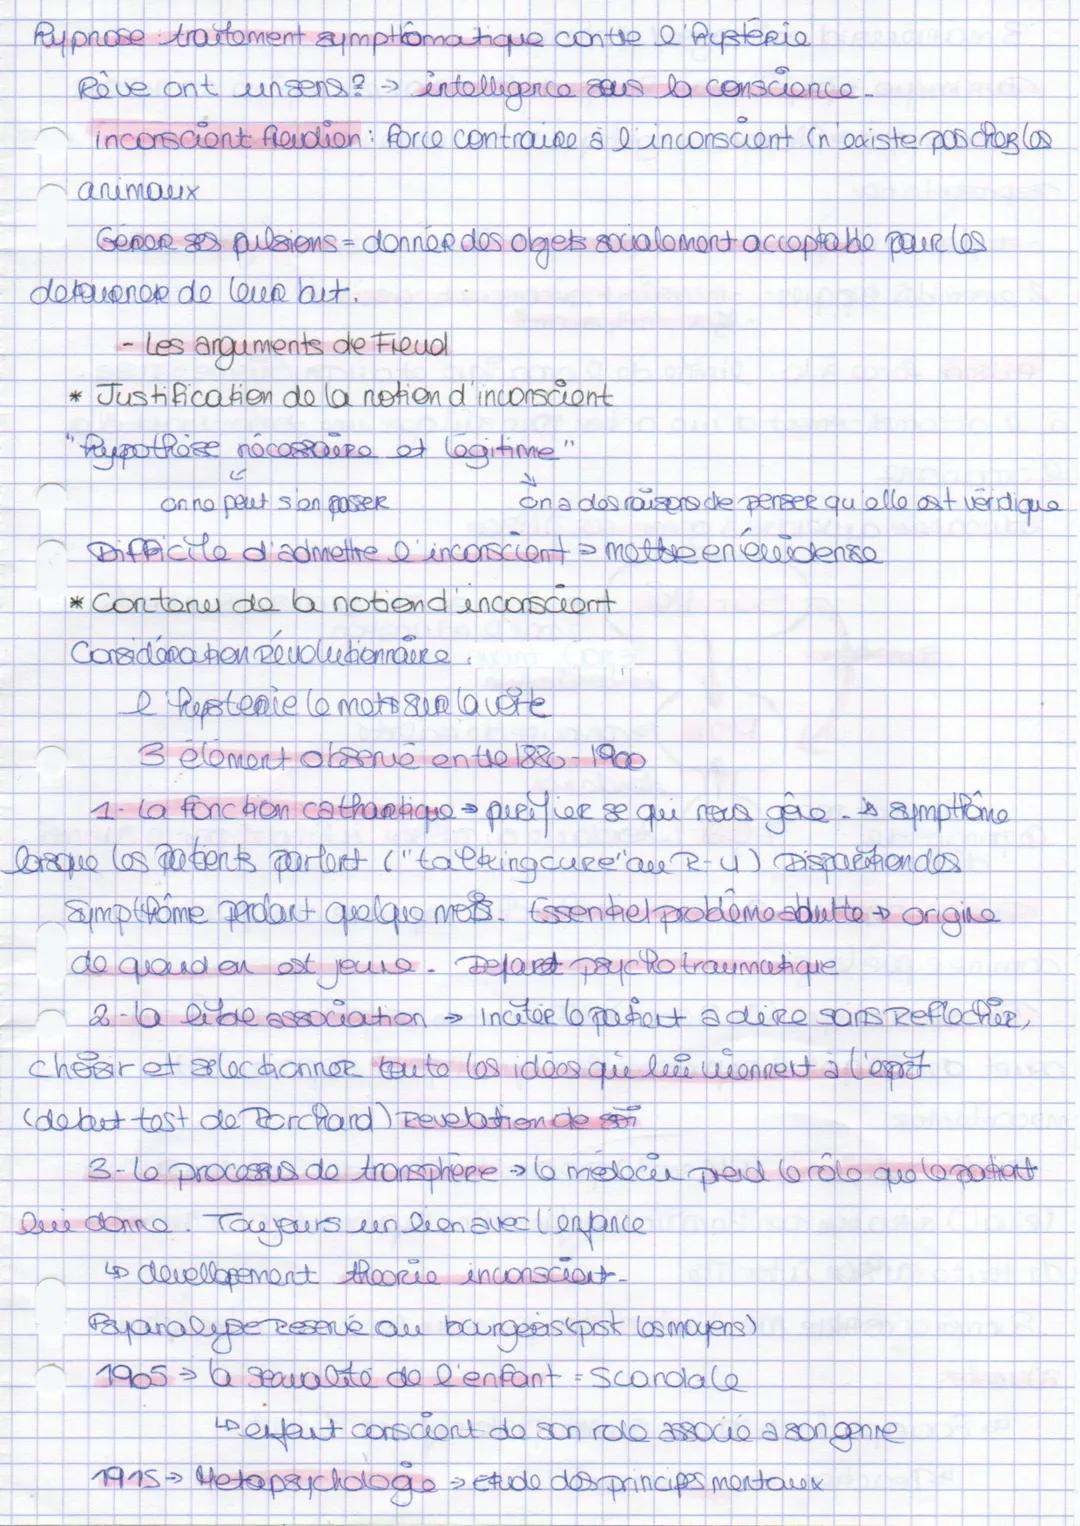 Hypnose : traitement symptômatique contre l'hystérie
Rêve ont un sens? → intelligence sous la conscience.
inconscient freudien : force contraire à l'inconscient (n'existe pas chez les
animaux
Gérer ses pulsions = donner des objets socialement acceptable pour les
detourner de leur but.
- Les arguments de Freud
* Justification de la notion d'inconscient
"hypothèse nécessaire et légitime"
on ne peut s'en passer on a des raisons de penser qu'elle est véridique
Difficile d'admettre l'inconscient → mettre en évidense
* Contenu de la notion d'inconscient
Considération révolutionnaire.
l'hysterie le mets sur la voie
3 élément observé entre 1880 - 1900
1- La fonction cathartique → purifier se qui nous gêne. ↳ symptôme
lorsque les patients parlent ("talking cure" au R-U) Disparition des
symptôme pendant quelque mois. Essentiel problème adulte → origine
de quand on est jeune. Defaut psychotraumatique
2- la libre association → inciter le patient a dire sans reflechir,
choisir et selectionner toute les idées qui lui viennent à l'esprit
(debut test de Rorchard) Revelation de soi
3- le processus de transphère → le médecin prend le rôle que le patient
lui donne. Toujours un lien avec l'enfance
↳ devellopement théorie inconscient.
Psyanalyse reservé au bourgeois (pst les moyens)
1905 → la sexualité de l'enfant = Scandale
↳ enfant conscient de son role associé a son genre
1915 → Métapsychologie → etude des principes mentaux